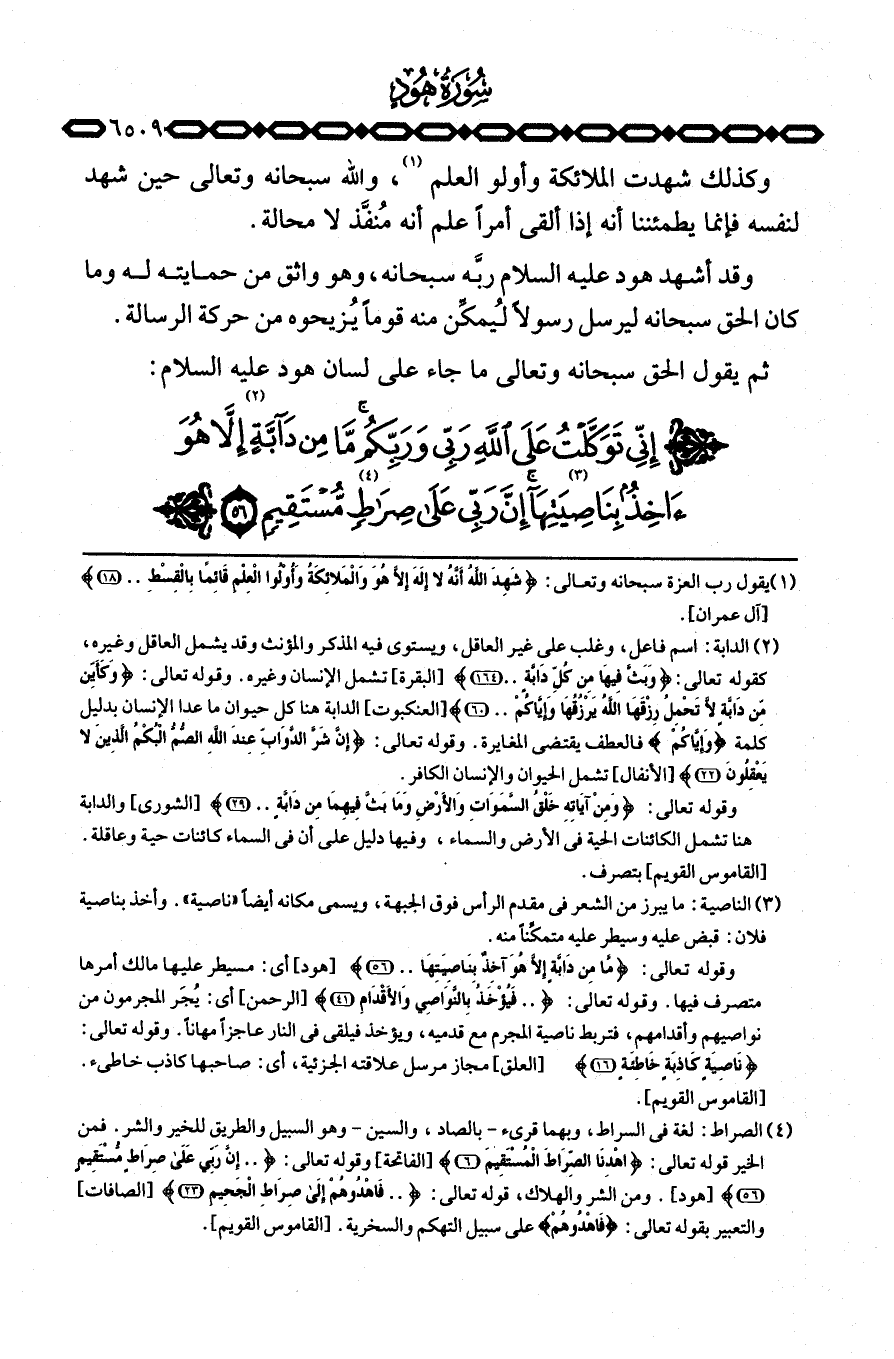 سُورَةُ هُودٍ
٦٥٠٩
وكذلك شهدت الملائكة وأولو العلم (١)، والله سبحانه وتعالى حين شهد
لنفسه فإنما يطمئننا أنه إذا ألقى أمراً علم أنه مُنفَّذ لا محالة.
وقد أشهد هود عليه السلام ربَّه سبحانه، وهو واثق من حمايته له وما
كان الحق سبحانه ليرسل رسولاً ليُمكِّن منه قوماً يُزيحوه من حركة الرسالة.
ثم يقول الحق سبحانه وتعالى ما جاء على لسان هود عليه السلام:
إِنِّي تَوَكَّلْتُ عَلَى ٱللَّهِ رَبِّي وَرَبِّكُمۚ مَّا مِن دَآبَّةٍ (٢) إِلَّا هُوَ
ءَاخِذُۢ بِنَاصِيَتِهَآۚ (٣) إِنَّ رَبِّي عَلَىٰ صِرَٰطٍ (٤) مُّسْتَقِيمٍ ٥٦
(١) يقول رب العزة سبحانه وتعالى: ﴿شَهِدَ اللَّهُ أَنَّهُ لا إِلَهَ إِلاَّ هُوَ وَالْمَلائِكَةُ وَأُوْلُوا الْعِلْمِ قَائِمًا بِالْقِسْطِ .. (١٨)﴾
[آل عمران].
(٢) الدابة: اسم فاعل، وغلب على غير العاقل، ويستوى فيه المذكر والمؤنث وقد يشمل العاقل وغيره،
كقوله تعالى: ﴿وَبَثَّ فِيهَا مِن كُلِّ دَابَّةٍ ..(١٦٤)﴾ [البقرة] تشمل الإنسان وغيره. وقوله تعالى: ﴿وَكَأَيِّن
مِّن دَابَّةٍ لاَّ تَحْمِلُ رِزْقَهَا اللَّهُ يَرْزُقُهَا وَإِيَّاكُمْ .. (٦٠)﴾[العنكبوت] الدابة هنا كل حيوان ما عدا الإنسان بدليل
كلمة ﴿وَإِيَّاكُمْ﴾ فالعطف يقتضى المغايرة. وقوله تعالى: ﴿إِنَّ شَرَّ الدَّوَابِّ عِندَ اللَّهِ الصُّمُّ الْبُكْمُ الَّذِينَ لا
يَعْقِلُونَ (٢٢)﴾ [الأنفال] تشمل الحيوان والإنسان الكافر.
وقوله تعالى: ﴿وَمِنْ آيَاتِهِ خَلْقُ السَّمَوَاتِ وَالأَرْضِ وَمَا بَثَّ فِيهِمَا مِن دَابَّةٍ .. (٢٩)﴾ [الشورى] والدابة
هنا تشمل الكائنات الحية فى الأرض والسماء، وفيها دليل على أن فى السماء كائنات حية وعاقلة.
[القاموس القويم] بتصرف.
(٣) الناصية: ما يبرز من الشعر فى مقدم الرأس فوق الجبهة، ويسمى مكانه أيضاً «ناصية». وأخذ بناصية
فلان: قبض عليه وسيطر عليه متمكِّناً منه.
وقوله تعالى: ﴿مَّا مِن دَابَّةٍ إِلاَّ هُوَ آخِذٌ بِنَاصِيَتِهَا .. (٥٦)﴾ [هود] أى: مسيطر عليها مالك أمرها
متصرف فيها. وقوله تعالى: ﴿.. فَيُؤْخَذُ بِالنَّوَاصِي وَالأَقْدَامِ (٤١)﴾ [الرحمن] أى: يُجَر المجرمون من
نواصيهم وأقدامهم، فتربط ناصية المجرم مع قدميه، ويؤخذ فيلقى فى النار عاجزاً مهاناً. وقوله تعالى:
﴿نَاصِيَةٍ كَاذِبَةٍ خَاطِئَةٍ (١٦)﴾ [العلق] مجاز مرسل علاقته الجزئية، أى: صاحبها كاذب خاطىء.
[القاموس القويم].
(٤) الصراط: لغة فى السراط، وبهما قرىء - بالصاد، والسين - وهو السبيل والطريق للخير والشر. فمن
الخير قوله تعالى: ﴿اهْدِنَا الصِّرَاطَ الْمُسْتَقِيمَ (٦)﴾ [الفاتحة] وقوله تعالى: ﴿.. إِنَّ رَبِّي عَلَىٰ صِرَاطٍ مُّسْتَقِيمٍ
(٥٦)﴾ [هود]. ومن الشر والهلاك، قوله تعالى: ﴿.. فَاهْدُوهُمْ إِلَىٰ صِرَاطِ الْجَحِيمِ (٢٣)﴾ [الصافات]
والتعبير بقوله تعالى: ﴿فَاهْدُوهُمْ﴾ على سبيل التهكم والسخرية. [القاموس القويم].